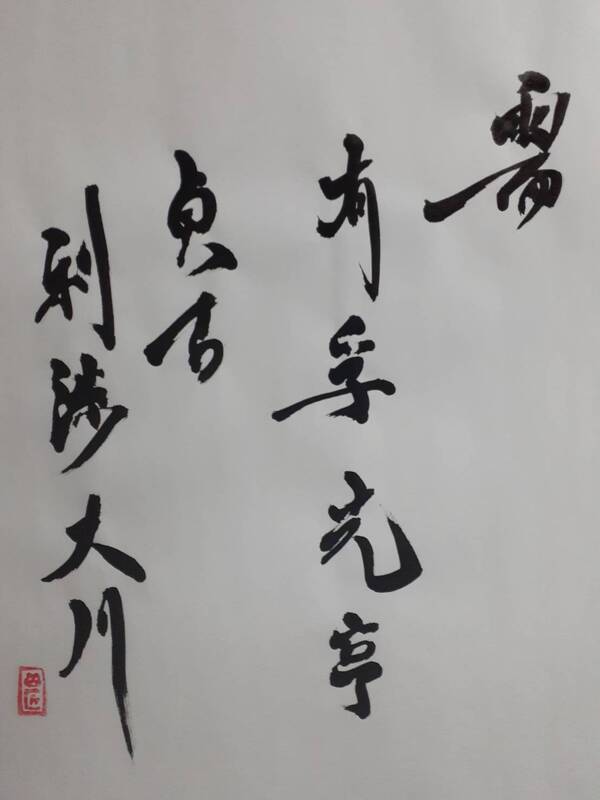 需
有孚光亨
貞吉
利涉大川